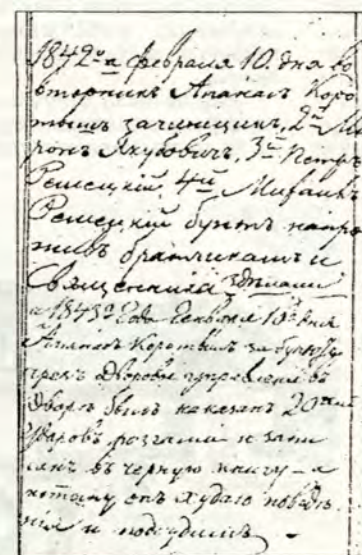 1842го февраля 10. дня во
вторникъ Апанасъ Коро
ткишъ зачинщикъ, 2й Ми
ронъ Якубовичъ, 3й Петръ
Решецкій, 4й Михаилъ
Решецкій бунтъ напро
тивъ братчикамъ и
Священника здѣлали
а 1843го Года Генваря 10го дня
Апанасъ Короткишъ за бунтъ
чрезъ Дворовое управленіе въ
Дворѣ былъ наказанъ 20тью
ударовъ розгами и запи
санъ въ черную книгу – а
потому онъ худаго поведѣ
нія и подсудимъ